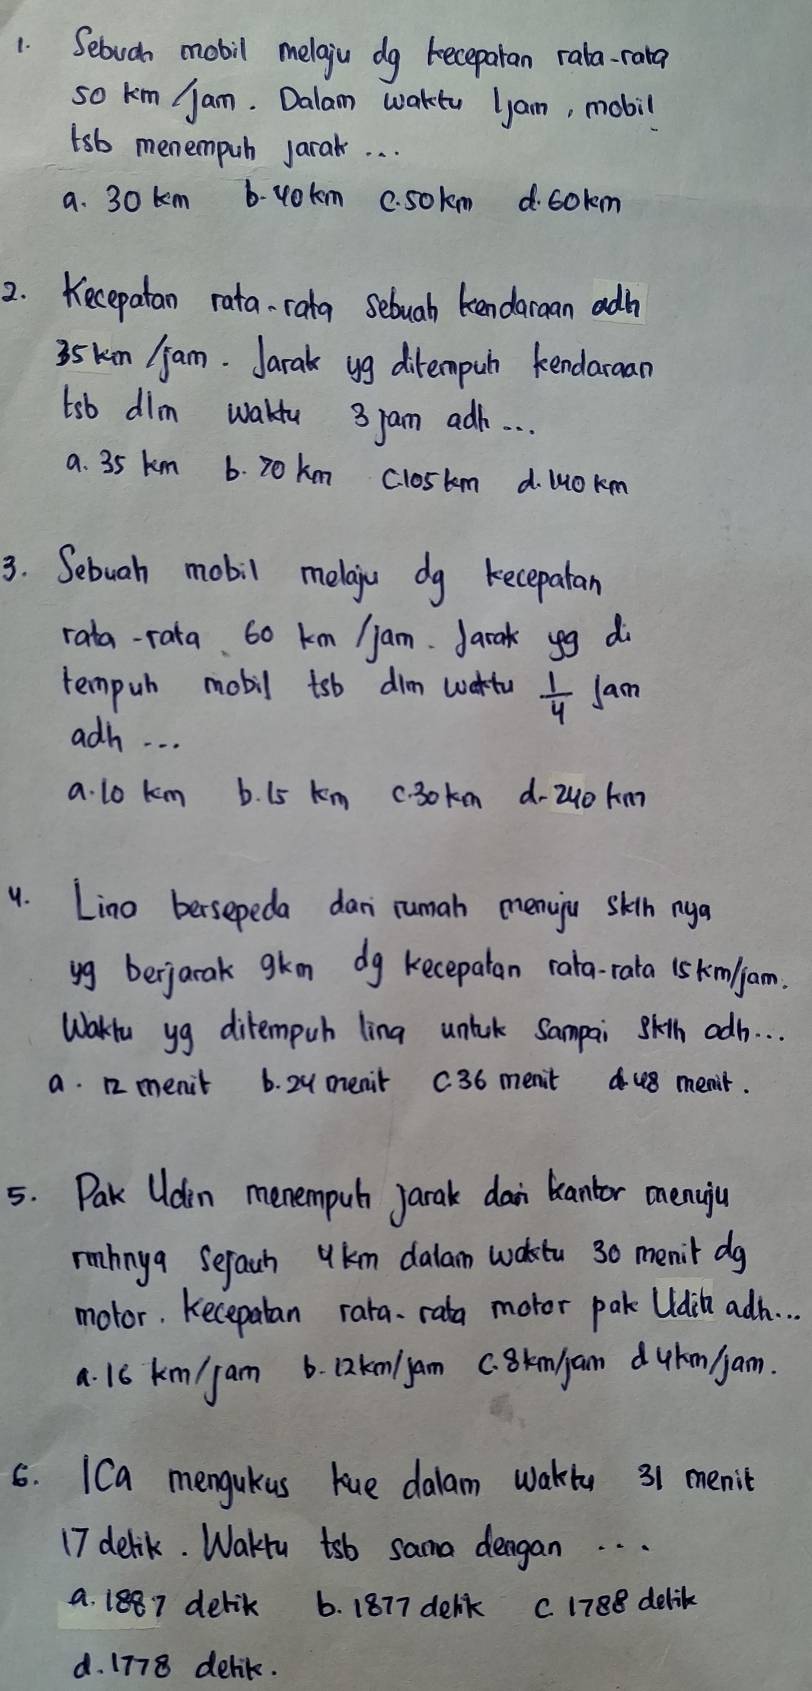 1. Sebuah mobil melaju dg kecepatan rata-rata
50 km/jam. Dalam waktu 1 jam, mobil
tsb menempuh jarak ...
a. 30 km b. 40 km c. 50 km d. 60 km
2. Kecepatan rata-rata sebuah kendaraan adh
35 km/jam. Jarak yg ditempuh kendaraan
tsb dlm waktu 3 jam adh ...
a. 35 km b. 70 km c. 105 km d. 140 km
3. Sebuah mobil melaju dg kecepatan
rata-rata 60 km/jam. Jarak yg di
tempuh mobil tsb dlm waktu 1/4 jam
adh ...
a. 10 km b. 15 km c. 30 km d. 240 km
4. Lino bersepeda dari rumah menuju sklh nya
yg berjarak 9 km dg kecepatan rata-rata 15 km/jam.
Waktu yg ditempuh lina untuk sampai sklh adh...
a. 12 menit b. 24 menit c 36 menit d. 48 menit.
5. Pak Udin menempuh jarak dari kantor menuju
rmhnya sejauh 4 km dalam waktu 30 menit dg
motor. Kecepatan rata-rata motor pak Udin adh...
a. 16 km/jam b. 12 km/jam c. 8 km/jam d 4 km/jam.
6. Ica mengukus kue dalam waktu 31 menit
17 detik. Waktu tsb sama dengan ...
a. 1887 detik b. 1877 detik c. 1788 detik
d. 1778 detik.